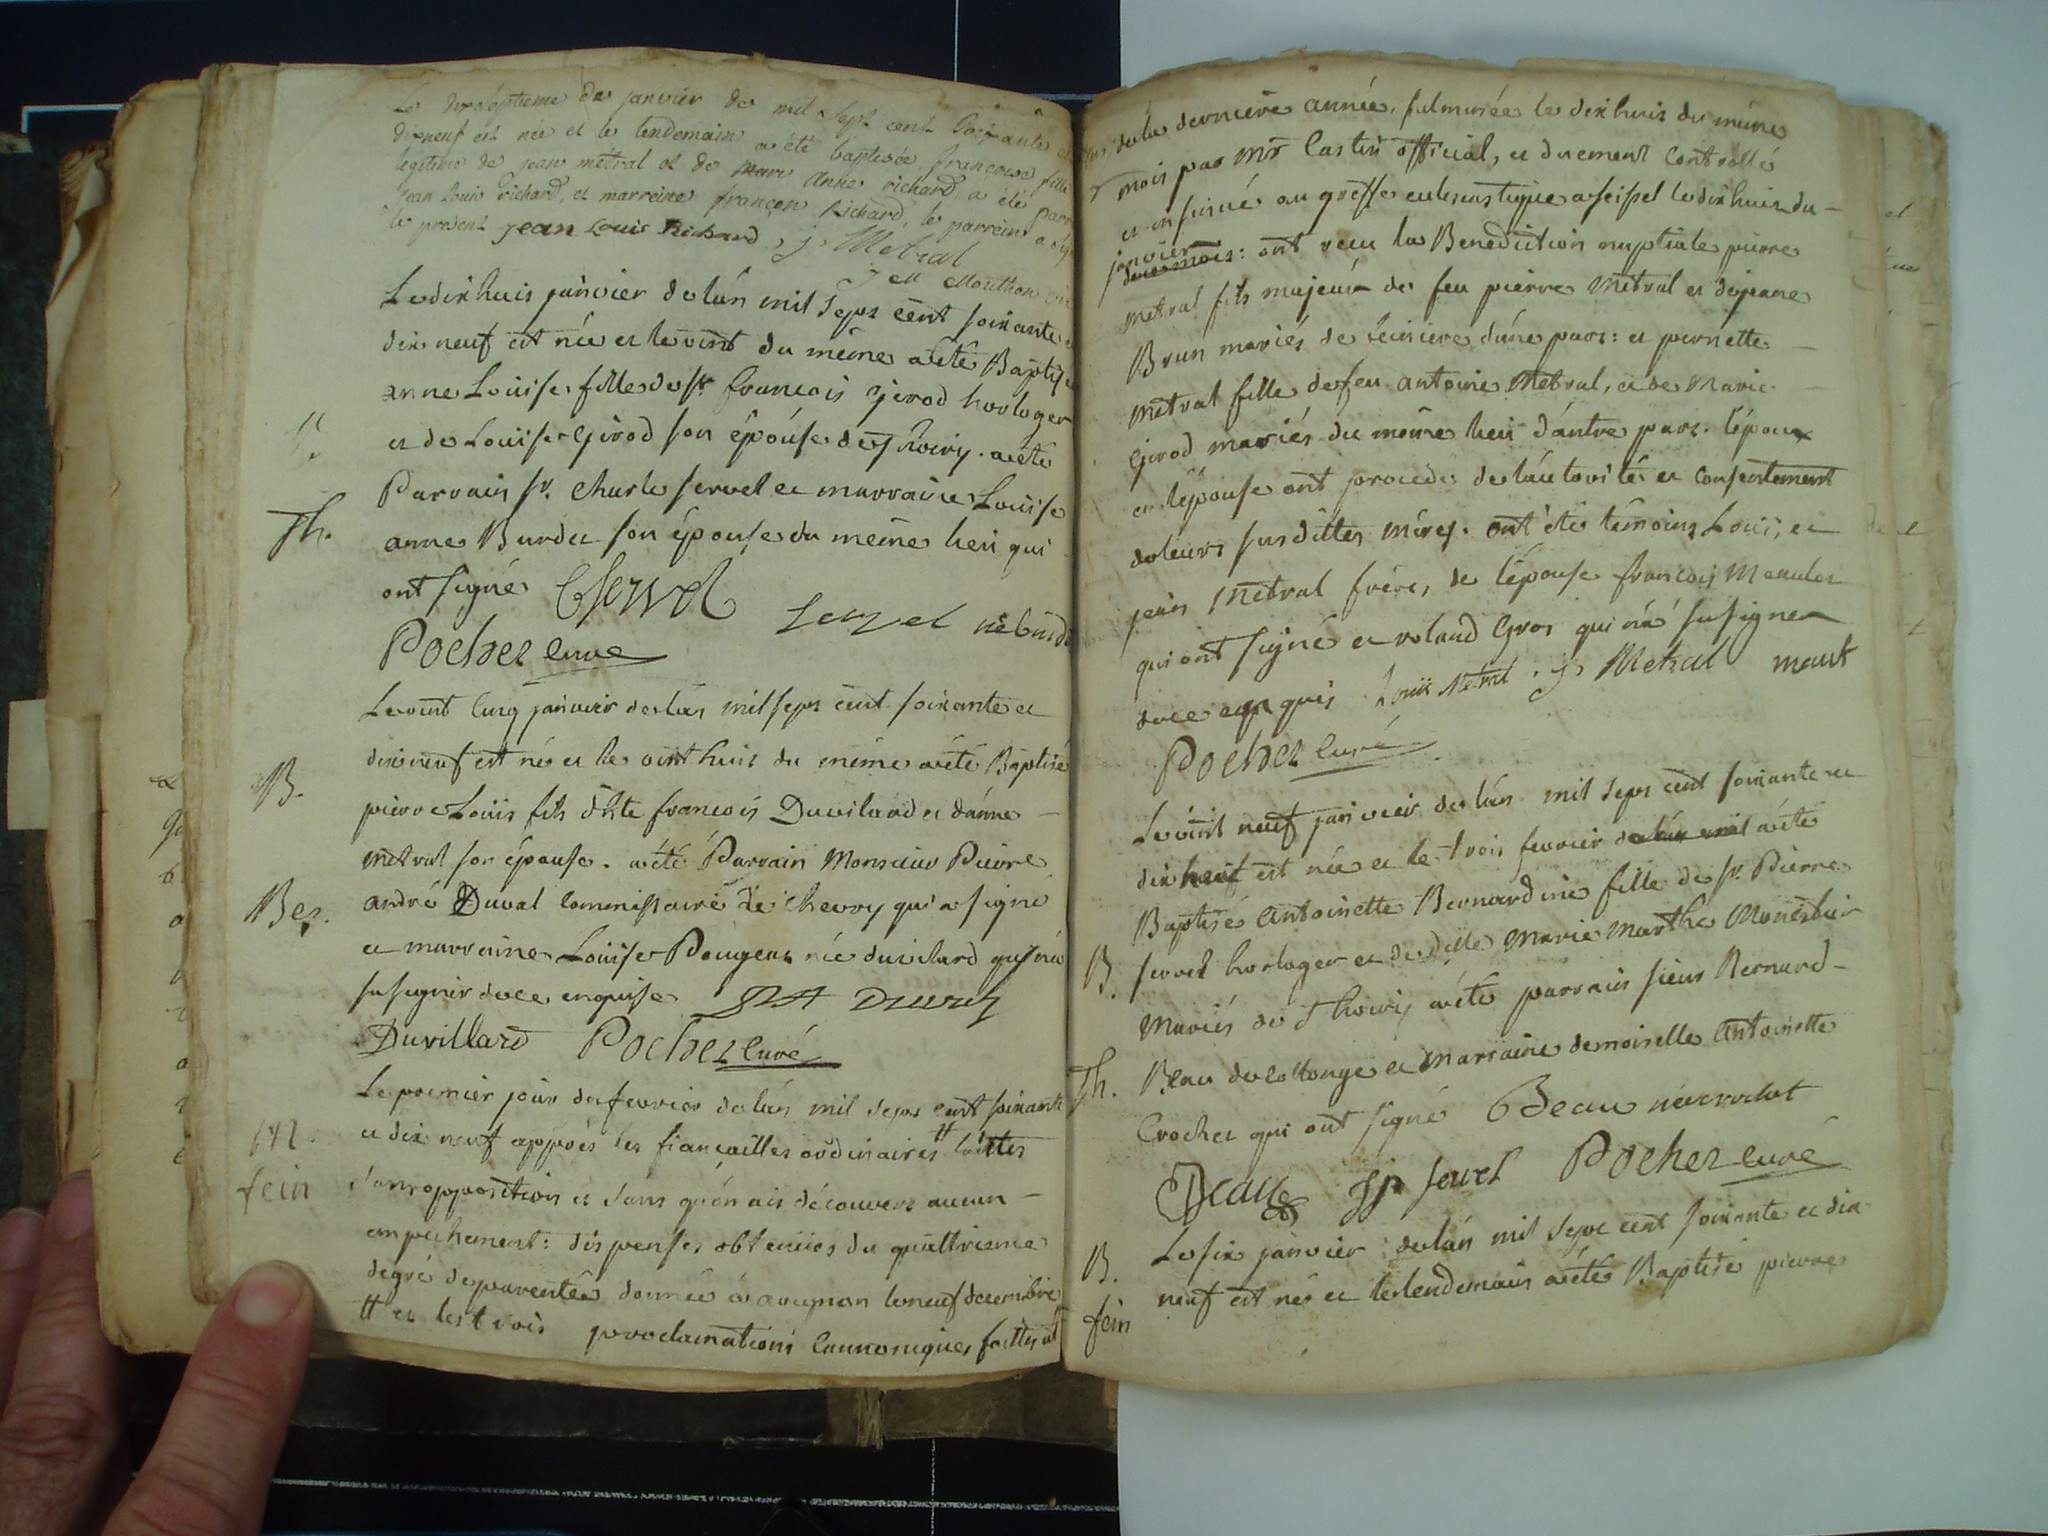 Le dixseptieme de janvier de mil sept cent soixante et
dixneuf est née et le lendemain a été baptisée françoise fille
legitime de jean métral et de marc anne richard, a été parr
jean louis richard, et marreine françon richard le parrein a
le present jean Louis Richard, j: Métral
Le dix huit janvier de l'án mil sept cent soixante et
dix neuf est née et le vint du même aété Baptisé
anne Louise fille de sr. francois girod horloger
et de Louise girod son épouse de Thoiry. aété
Parrain sr. charle servel et marraine Louise
Th.
anne Burdet son épouse du même lieu qui
ont signé CServel Servel né Burde
Pochet curé
Le vint cinq janvier de l'án mil sept cent soixante et
dix neuf est né et le vint huit du même aété Baptisé
B.
pierre Louis fils d'hte francois Duvilard et d'anne
métral son épouse. aété Parrain Monsieur Pierre
andré Duval commissaire de Chevry qui a signé
et marraine Louise Pougeat née duvilard qui n'a
su signer de ce enquise PA Duval
Duvillard Pochet curé
Le premier jour de fevrier de l'án mil sept cent soixante
et dix neuf apprés les fiançailles ordinaires tt faittes
fein
sans opposition et sans qu'on ait découvert aucun
empechement: dispenses obtenües du quattrieme
degré de parentée donnée á avignon le neuf decembre
tt et les trois proclamations cannoniques faittes
de la derniere année, fulminée le dix huit du même
mois par Mr Castin official, et duement controllé
et insinué au greffe eclesiastique a seissel le dix huit du
janvier
mois: ont recu la Benediction nuptiale pierre
metral fils majeur de feu pierre Métral et de jeane
Brun mariés de feiniere d'úne part: et pernette
métral fille de feu antoine Metral, et de Marie
girod mariés du même lieu d'autre part. l'époux
et l'épouse ont procedé de l'autorité et consentement
de leurs susdittes méres. ont été témoins Louis, et
jean Métral fréres, de l'épouse francois
qui ont signé et roland Gros qui n'á su signer
de ce enquis Louis Métral. j: Metral
Pochet curé
Le vint neuf janvier de l'án mil sept cent soixante et
dix neuf est née et le trois fevrier de l'án mil aété
Baptisé antoinette Bernardine fille de sr. Pierre
B.
servel horloger et de dlle Marie Marthe Monestier
Mariés de Thoiry aété parrain sieur Bernard
Th.
Beau de collonge et marraine demoiselle antoinette
Crochet qui ont signé Beau née crochet
Beau jp servel Pochet curé
B.
Le six janvier de l'án mil sept cent soixante et dix
fein
neuf est né et le lendemain aété Baptisé pierre